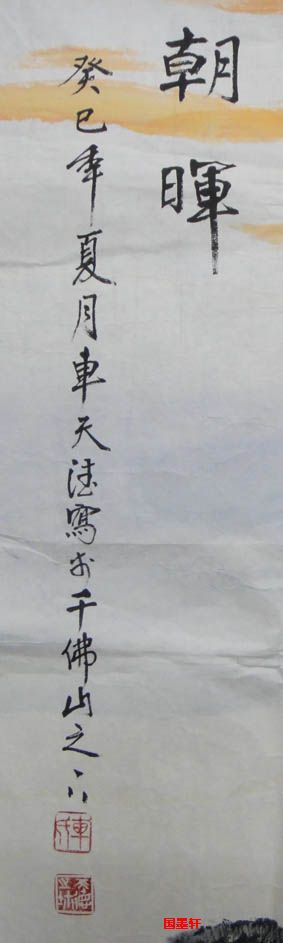 朝暉
癸巳年夏月車天德寫於千佛山之下
国墨轩